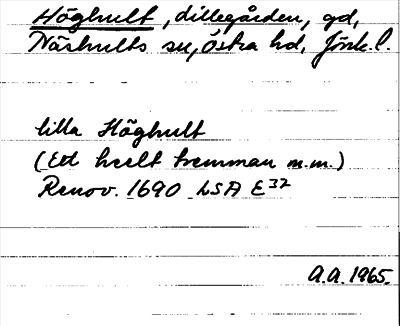 Höghult, dillegården, gd,
Näshults sn, Östra hd, Jönk. l.
lilla Höghult
(Ett heelt hemman m.m.)
Renov. 1690 LSA E32
A.A. 1965.